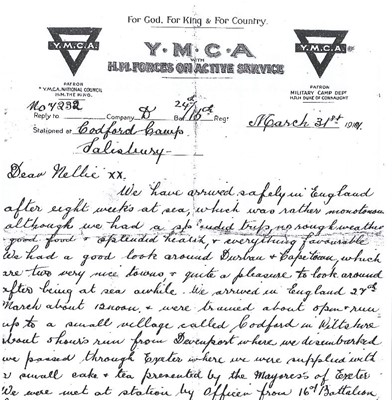 For God, For King & For Country.
Y.M.C.A.
Y.M.C.A.
Y.M.C.A
WITH
H.M. FORCES ON ACTIVE SERVICE
PATRON
Y.M.C.A. NATIONAL COUNCIL
H.M. THE KING.
PATRON
MILITARY CAMP DEPT
H.R.H. DUKE OF CONNAUGHT
No 4232
24th
Reply to Company D Bat 16th Regt
March 31st 191
Stationed at Codford Camp.
Salisbury
Dear Nellie xx.
We have arrived safely in England
after eight weeks at sea, which was rather monotonous
although we had a splended trip, no rough weather
good food & splended health, & everything favourable
We had a good look around Durban & Capetown, which
are two very nice towns & quite a pleasure to look around
after being at sea awhile. We arrived in England 27th
March about 12 noon, & were trained about 3pm & run
up to a small village called Codford in Wiltshire
about 5 hours run from Devenport where we disembarked
we passed through Exeter where we were supplied with
a small cake & tea presented by the Mayoress of Exeter
We were met at station by Officer from 16th Battalion